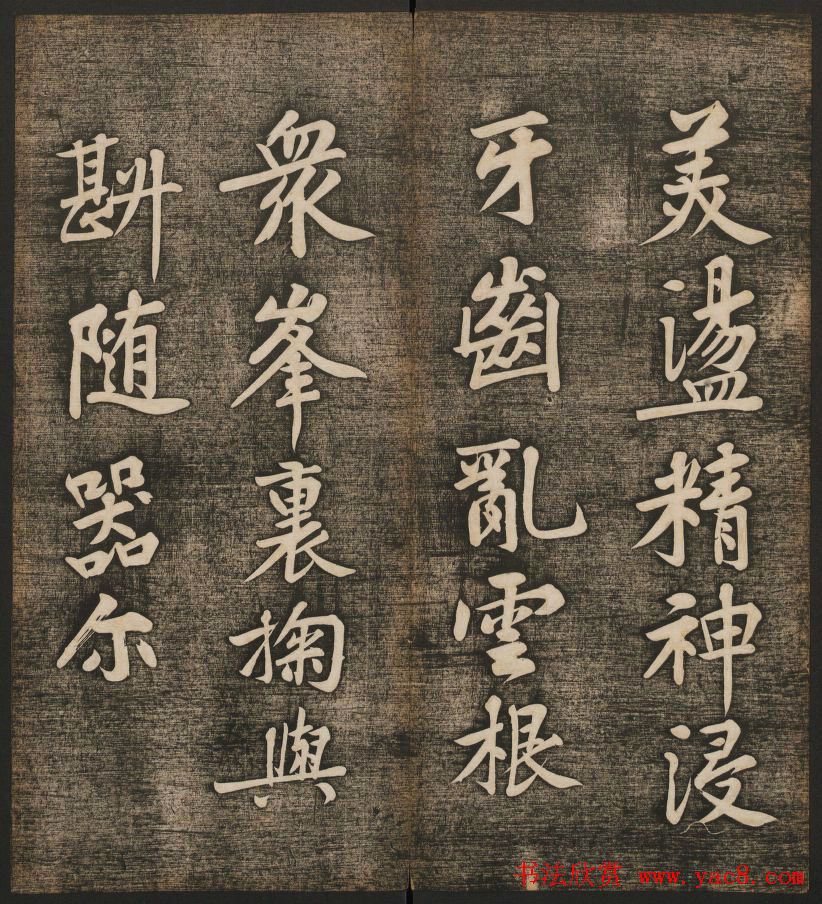 美盪精神浸
牙齒亂雲根
衆峯裏掬與
斟随器尔
书法欣赏 www.yac8.com